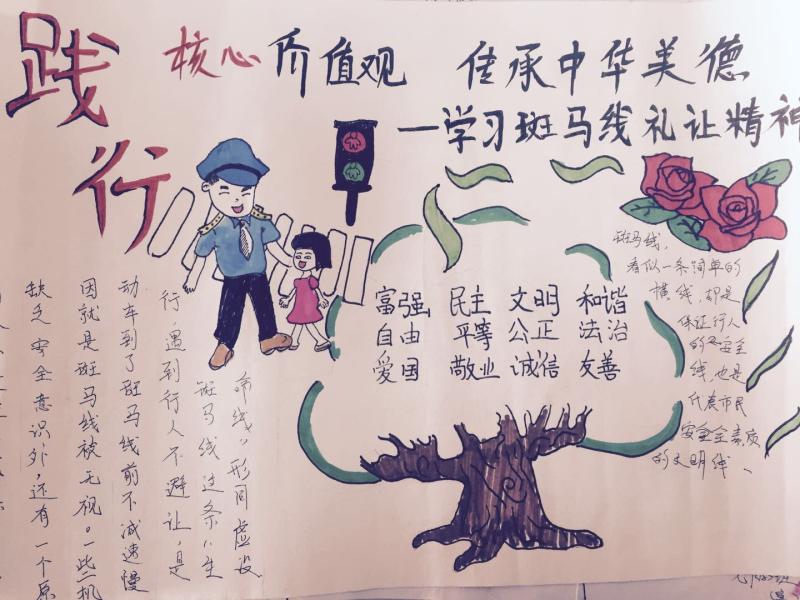 践行
核心价值观 传承中华美德
—学习斑马线礼让精神
富强 民主 文明 和谐
自由 平等 公正 法治
爱国 敬业 诚信 友善
斑马线,
看似一条简单的
横线,却是
保证行人
的安全
线,也是
代表市民
安全全素质
的文明线、
命线"形同虚设
斑马线这条"生
行,遇到行人不避让,是
动车到了斑马线前不减速慢
因就是斑马线被无视。一些机
缺乏安全意识外,还有一个原